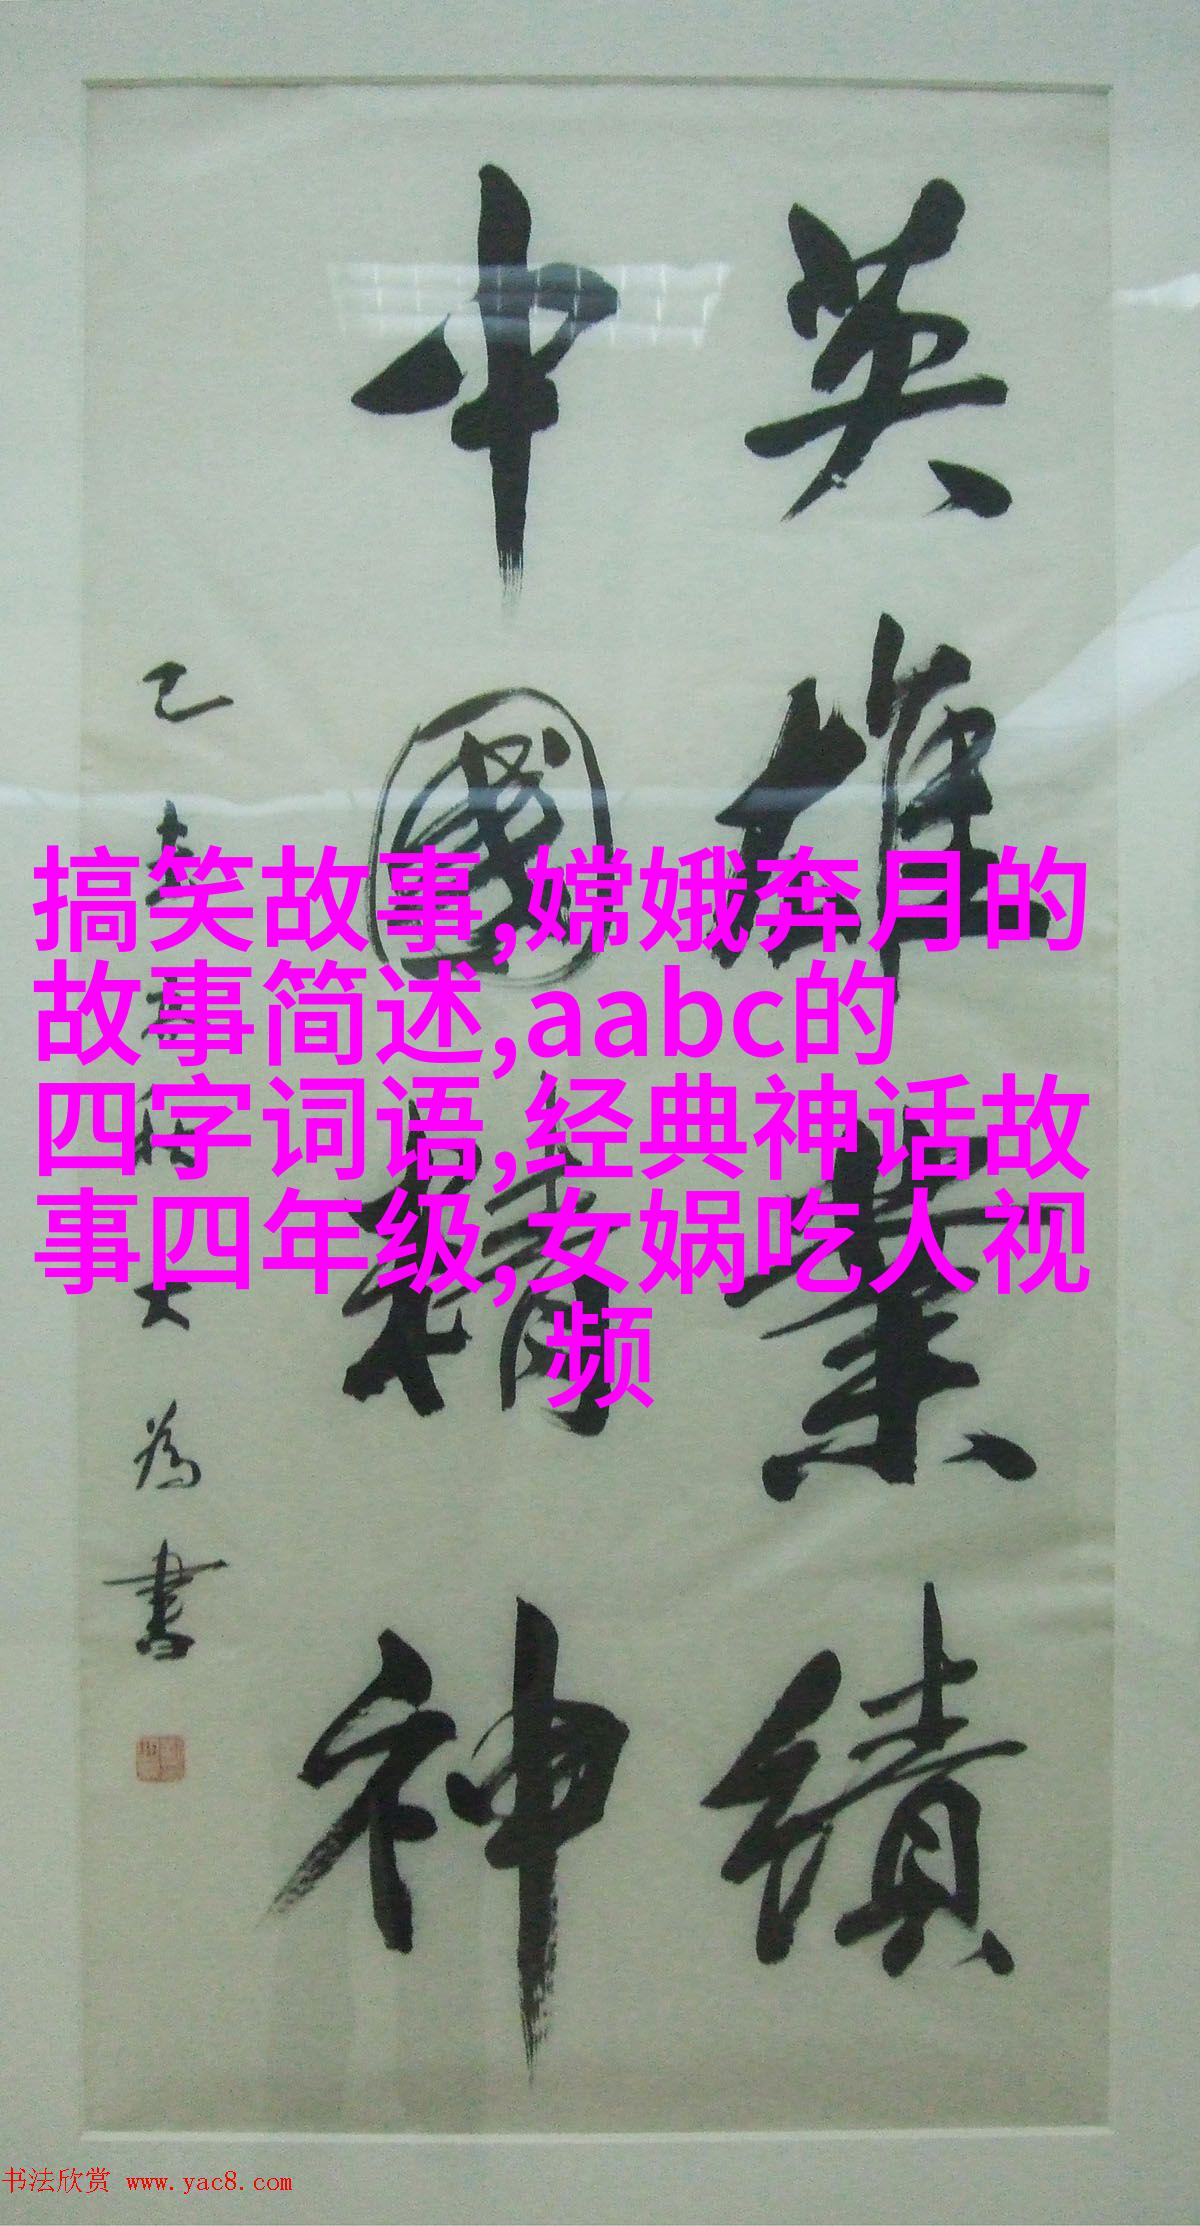 英雄業績
中國精神
為書
搞笑故事,嫦娥奔月的
故事简述,aabc的
四字词语,经典神话故
事四年级,女娲吃人视
频
书法欣赏 www.yac8.com